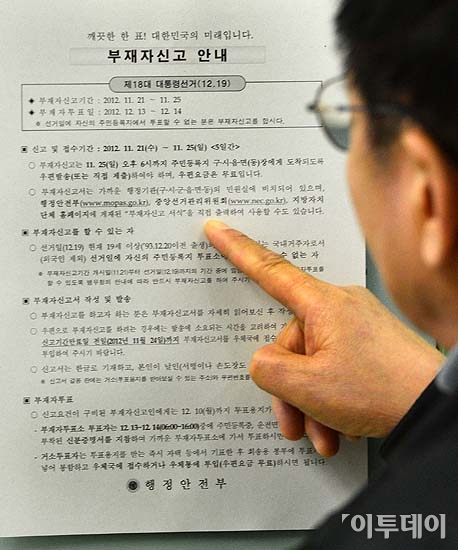 깨끗한 한 표! 대한민국의 미래입니다.
부재자신고 안내
제18대 대통령선거(12.19)
◆ 부재자신고기간 : 2012. 11. 21 ~ 11. 25
◆ 부재자투표일 : 2012. 12. 13 ~ 12. 14
※ 선거일에 자신의 주민등록지에서 투표할 수 없는 분은 부재자신고를 합시다.
▣ 신고 및 접수기간 : 2012. 11. 21(수) ~ 11. 25(일) <5일간>
○ 부재자신고는 11. 25(일) 오후 6시까지 주민등록지 구·시·읍·면(동)장에게 도착되도록
우편발송(또는 직접 제출)해야 하며, 우편요금은 무료입니다.
○ 부재자신고서는 가까운 행정기관(구·시·군·읍·면·동)의 민원실에 비치되어 있으며,
행정안전부(www.mopas.go.kr), 중앙선거관리위원회(www.nec.go.kr), 지방자치
단체 홈페이지에 게재된 "부재자신고 서식"을 직접 출력하여 사용할 수도 있습니다.
▣ 부재자신고를 할 수 있는 자
○ 선거일(12.19) 현재 19세 이상('93.12.20이전 출생) 국내거주자로서
(외국인 제외) 선거일에 자신의 주민등록지 투표소 수 없는 자
※ 부재자신고기간 개시일(11.21)부터 선거일(12.19)까지의 기간 중에
할 수 있도록 병무청의 안내에 따라 반드시 부재자신고를 하여 주시기
▣ 부재자신고서 작성 및 발송
○ 부재자신고를 하고자 하는 분은 부재자신고서를 자세히 읽어보신 후 작성
○ 우편으로 부재자신고를 하려는 경우에는 발송에 소요되는 시간을 고려하여
신고기간만료일 전일(2012년 11월 24일)까지 부재자신고서를 우체국에 접수
투입하여 주시기 바랍니다.
○ 신고서는 한글로 기재하고, 본인이 날인(서명이나 손도장도
※ 신고서 겉봉 란에는 거소(투표용지를 받아보실 수 있는 주소)와 우편번호를
▣ 부재자투표
○ 신고요건이 구비된 부재자신고인에게는 12. 10(월)까지 투표용지가
- 부재자투표소 투표자는 12. 13~12. 14(06:00~16:00)중에 주민등록증, 운전면
부착된 신분증명서를 지참하여 가까운 부재자투표소에 가서 투표하시면
- 거소투표자는 투표용지를 받는 즉시 자택 등에서 기표한 후 회송용 봉투에
넣어 봉함하고 우체국에 접수하거나 우체통에 투입(우편요금 무료)하시면 됩니다.
행정안전부
이투데이